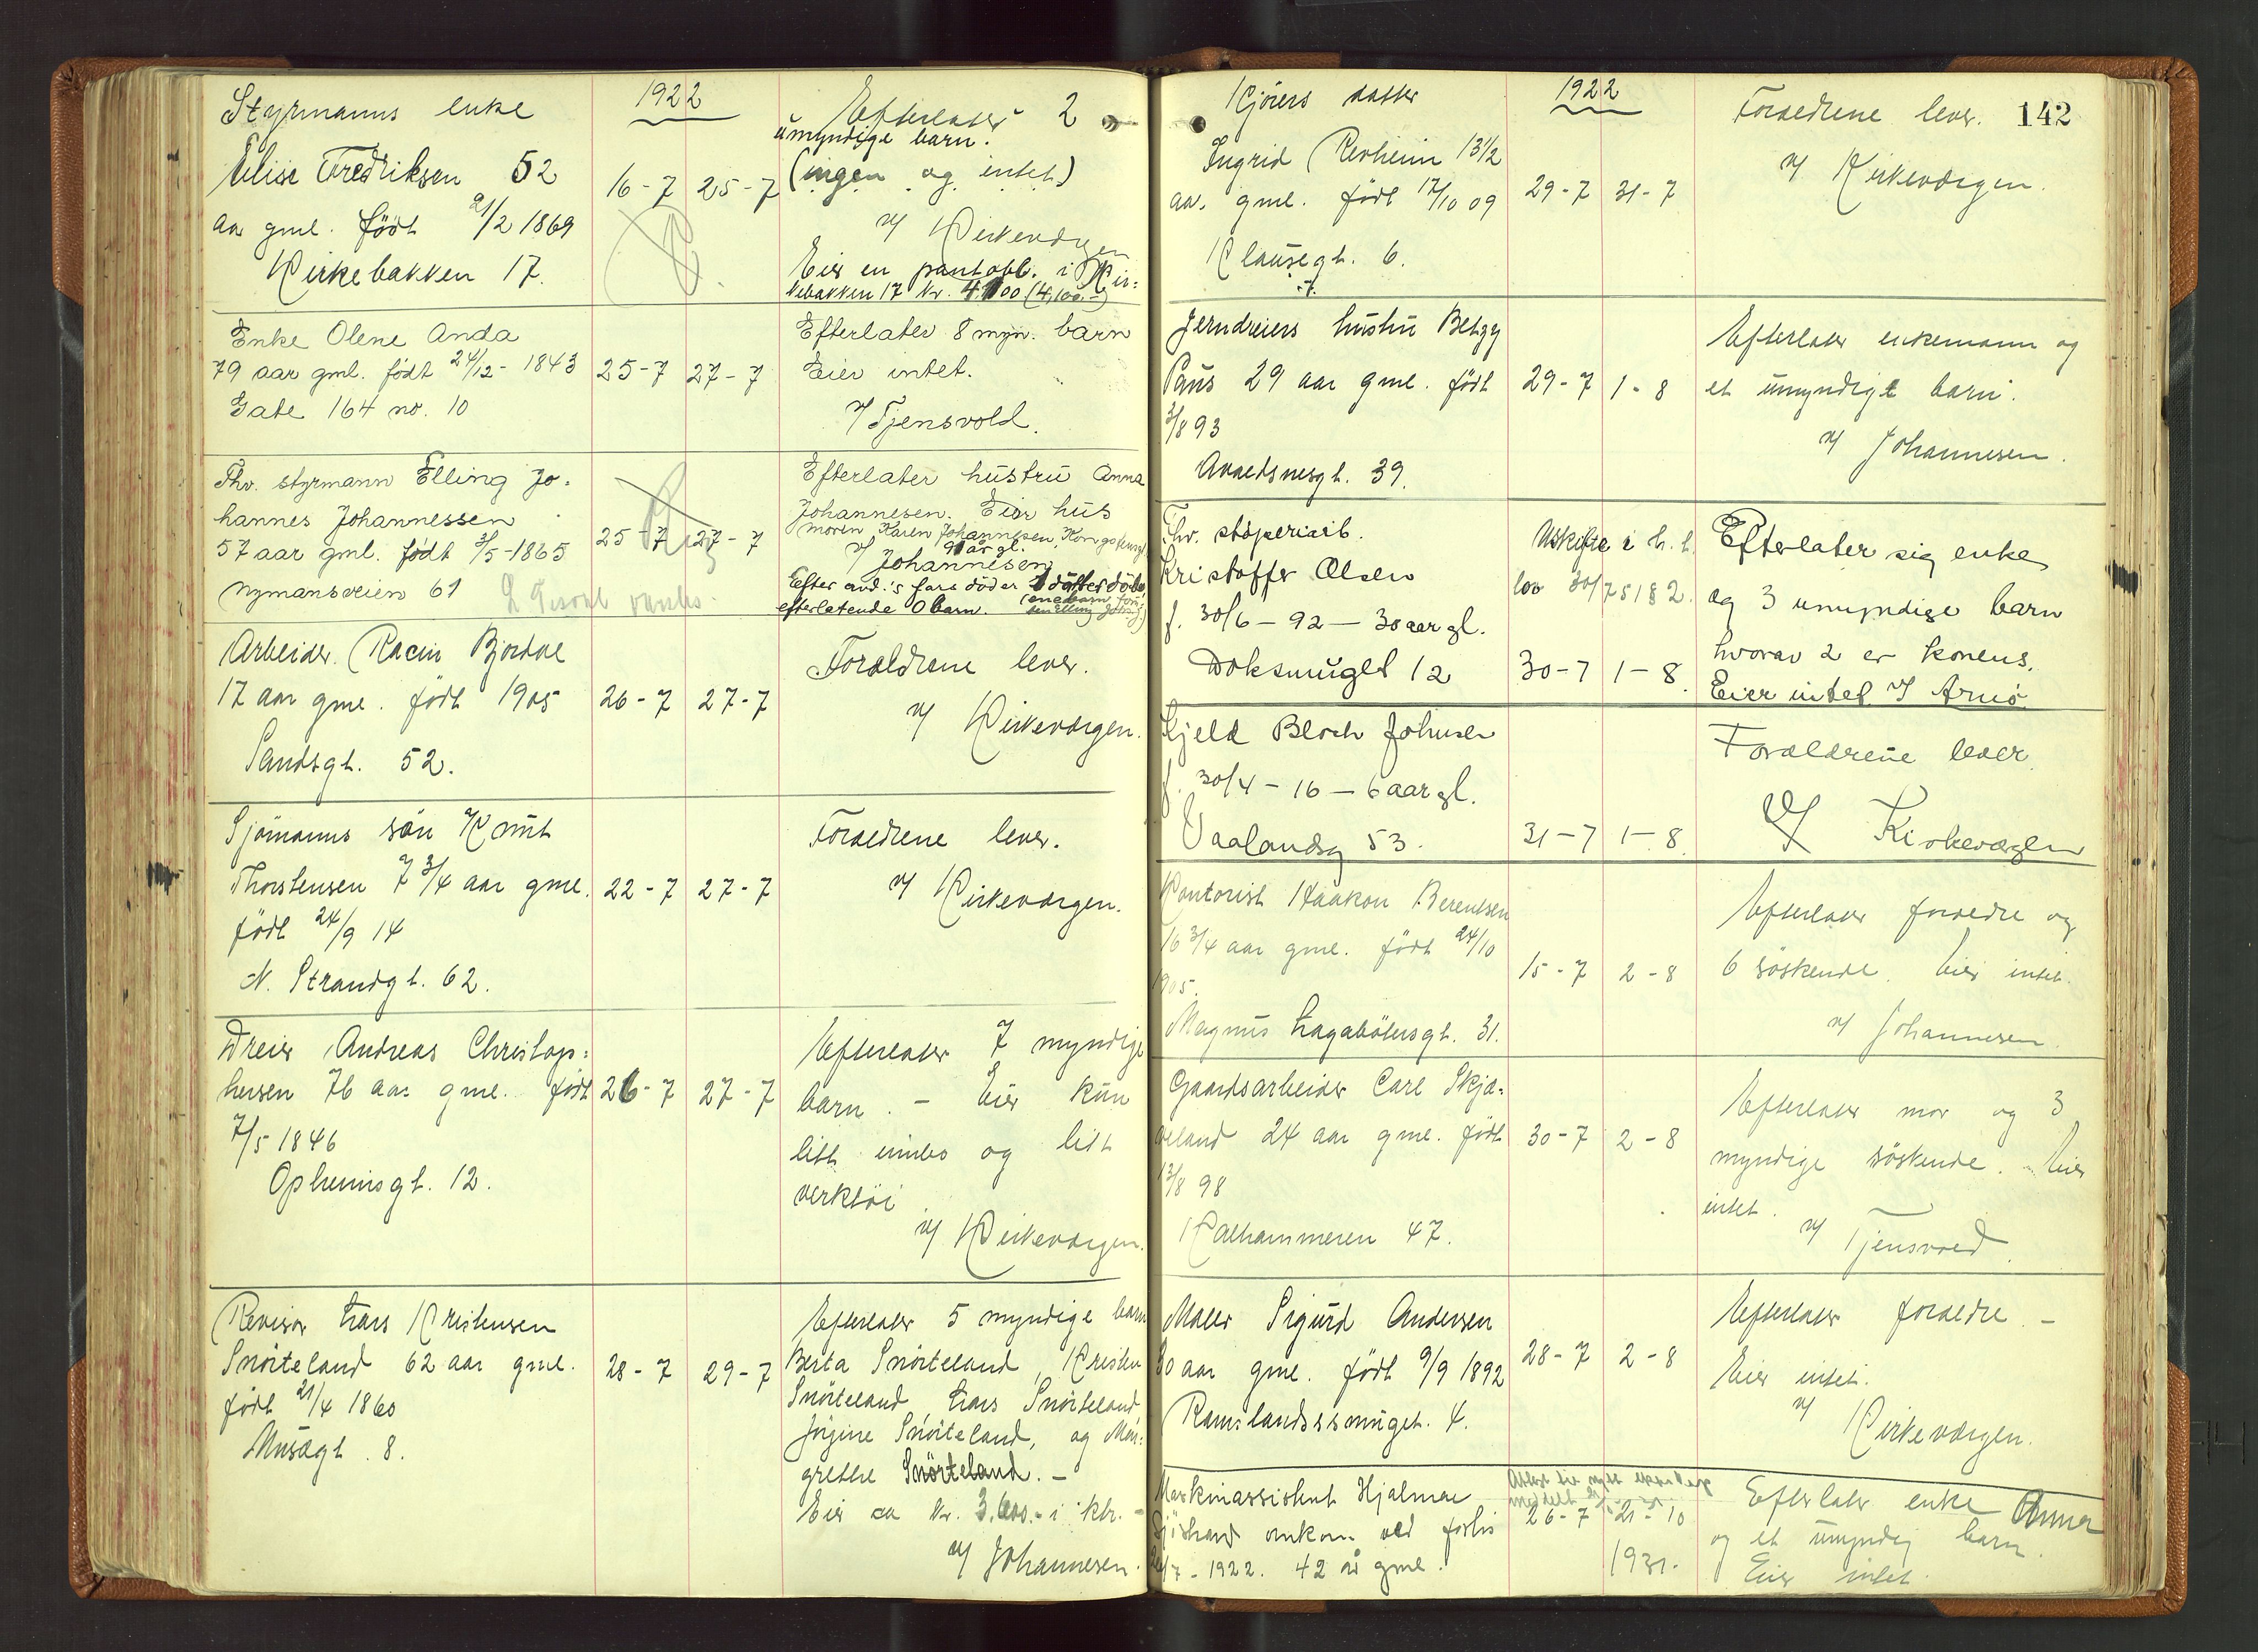 Styrmanns enke
Elise Fredriksen 52
aar gml. født 21/2 1869
Kirkebakken 17.
1922
16-7 25-7
Efterlater 2
umyndige barn.
(ingen og intet)
v/ Kirkevergen
Eier en pantobl. i Kir-
kebakken 17 Kr. 4100 (4,100.-)
Enke Olene Anda
79 aar gml. født 24/12- 1843
Gate 164 no. 10
25-7 27-7
Efterlater 8 myn. barn
Eier intet.
v/ Tjensvold.
Fhv. styrmann Elling Jo-
hannes Johannessen
57 aar gml. født 3/5-1865
Nymansveien 61
25-7 27-7
Efterlater hustru Anna
Johannesen. Eier hus
moren Karen Johannesen, Kongsteinsgt.
91 år gl.
v/ Johannesen
Efter avd.'s fars död er 1 datter död
efterlatende 0 barn.
Arbeider Racin Bjordal
17 aar gml. født 1905
Sandsgt. 52.
26-7 27-7
Foraldrene lever.
v/ Kirkevergen.
Sjömanns sön Knut
Thorstensen 7 3/4 aar gml.
født 24/9 14
N. Strandgt. 62.
22-7 27-7
Foraeldrene lever.
v/ Kirkevergen.
Dreier Andreas Christop-
hersen 76 aar gml. født
7/5 1846
Opheimsgt. 12.
26-7 27-7
Efterlater 7 myndige
barn. - Eier kun
litt innbo og litt
verktöi
v/ Kirkevergen.
Revisor Lars Kristensen
Snörteland 62 aar gml.
født 21/4 1860
Musægt. 8.
28-7 29-7
Efterlater 5 myndige barn
Berta Snörteland, Kristen
Snörteland, Lars Snörteland
Jörgine Snörteland, og Mar-
grethe Snörteland. -
Eier ca Kr. 3.600.- i ktr. -
v/ Johannesen.
142
Kjörers datter
Ingrid Revheim 13 1/2
aar gml. født 17/10 09
Clausegt. 6.
1922
29-7 31-7
Foraeldrene lever.
v/ Kirkevergen.
Jerndreiers hustru Betzy
Paus 29 aar gml. født
3/8 93
Avaldsnesgt. 39.
29-7 1-8
Efterlater enkemann og
et umyndigt barn.
v/ Johannesen.
Fhv. stöperiarb.
Kristoffer Olsen
f. 30/6-92-30 aar gl.
Doksmuget 12
Uskifte i h. t.
lov 30/7 51 § 2.
30-7 1-8.
Efterlater sig enke
og 3 umyndige barn
hvorav 2 er konens.
Eier intet v/ Arnö
Kjeld Bloch Johnsen
f. 30/4-16-6 aar gl.
Vaalandsg 53.
31-7 1-8.
Foraldrene lever.
v/ Kirkevergen
Kontorist Haakon Berentsen
16 3/4 aar gml. født 24/10
1905.
Magnus Lagabötersgt. 31.
15-7 2-8
Efterlater foraeldre og
6 söskende. Eier intet.
v/ Johannesen.
Gaardsarbeider Carl Skjæ-
veland 24 aar gml. født
13/8 98
Kalhammeren 47.
30-7 2-8
Efterlater mor og 3
myndige söskende. Eier
intet.
v/ Tjensvold.
Maler Sigurd Andersen
30 aar gml. født 9/9 1892
Ramslandssmuget. 4.
28-7 2-8
Efterlater foraeldre. -
Eier intet.
v/ Kirkevergen.
Maskinassistent Hjalmar
Sjöstrand omkom ved forlis
26/7-1922. 42 år gml.
26-7 21-10
1931.
Efterlater enke Anna
og et umyndig barn.
Eier intet.